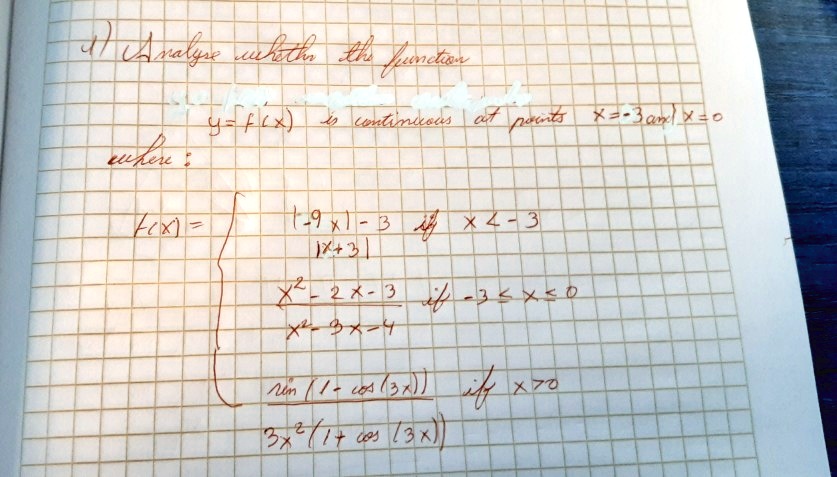 1) Analyse whethr the function
y = f(x) is continuous at points x = -3 and x = 0
where :
f(x) =
|-9x| - 3 if x < -3
|x+3|
x² - 2x - 3 if -3 ≤ x ≤ 0
x² - 3x - 4
sin (1 - cos (3x)) if x > 0
3x² (1 + cos (3x))